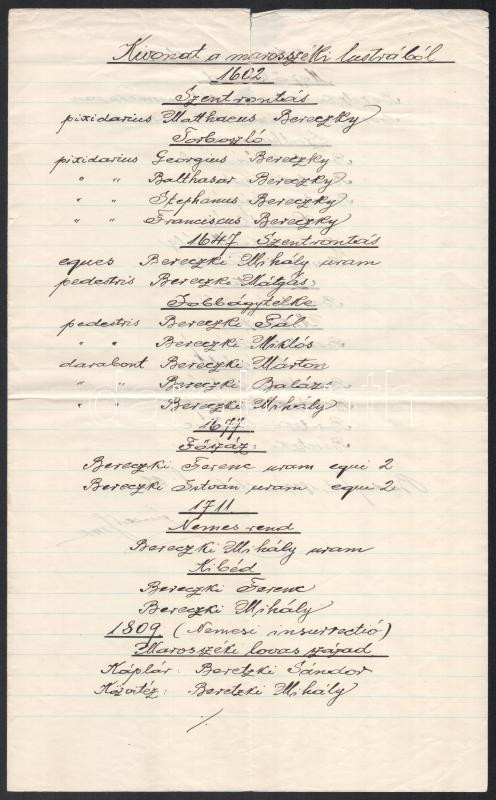 Kivonat a marosszéki lustrából
1602
Szentrontás
pixidarius Matthaeus Bereczky
Torboszló
pixidarius Georgius Bereczky
" " Balthasar Bereczky
" " Stephanus Bereczky
" " Franciscus Bereczky
1647 Szentrontás
eques Bereczki Mihály uram
pedestris Bereczki Mátyás
Jobbágytelke
pedestris Bereczki Pál
" " Bereczki Miklós
darabont Bereczki Márton
" " Bereczki Balázs
" " Bereczki Mihály
1677
Főszáz:
Bereczki Ferenc uram equi 2
Bereczki István uram equi 2
1711
Nemes rend
Bereczki Mihály uram
Kibéd
Bereczki Ferenc
Bereczki Mihály
1809 (Nemesi insurrectió)
Marosszéki lovas század
Káplár: Beretzki Sándor
Közvitéz: Beretzki Mihály
./.